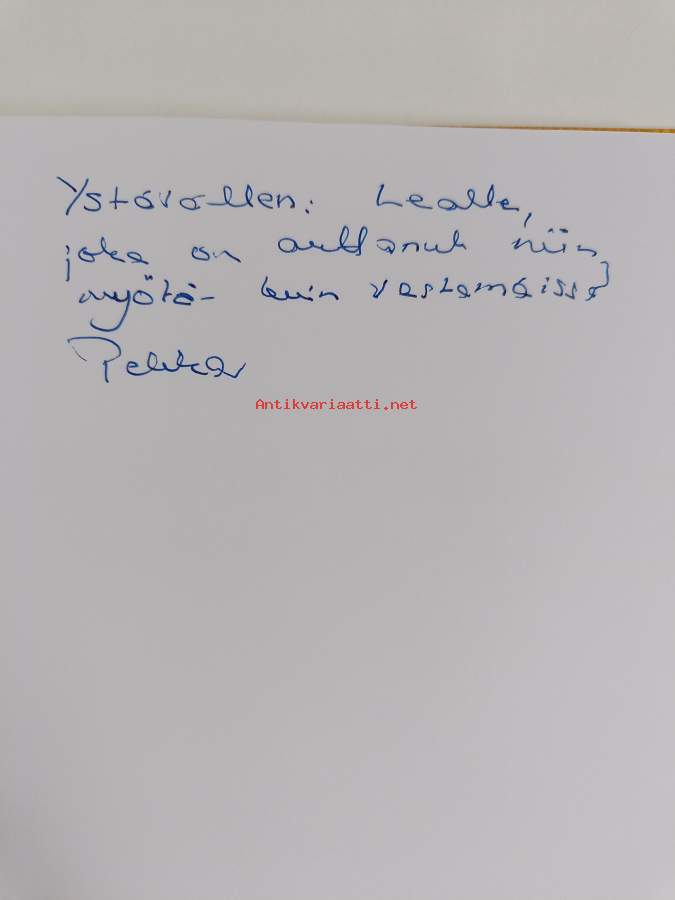 Ystävällen: Lealle,
joka on auttanut niin
myötä- kuin vastamäissä
Pekka
Antikvariaatti.net